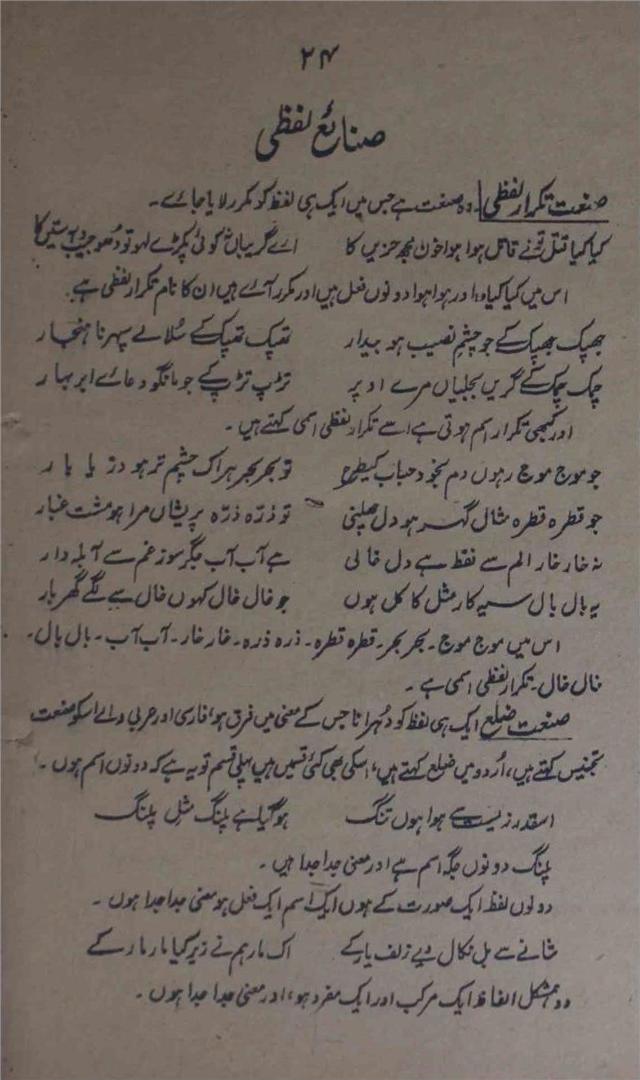 ۲۴
صنایع لفظی
صنعت تکرار لفظی وہ صنعت ہے جس میں ایک ہی لفظ کو مکرر لایا جائے۔
کیا کیا قتل تونے قاتل ہوا ہوا خون مجھ حزیں کا اے گریباں کوئی پکڑے لہو تو دھو جیب و آستیں کا
اس میں کیا کیا، اور ہوا ہوا دونوں فعل ہیں اور مکرر آے ہیں ان کا نام تکرار لفظی ہے۔
جھپک جھپک کے جو چشم نصیب ہو بیدار تھپک تھپک کے سُلائے سپہر نا ہنجار
چمک چمک کے گریں بجلیاں مرے اوپر تڑپ تڑپ کے جو مانگو دعاے ابر بہار
اور کبھی تکرار اسم ہوتی ہے اسے تکرار لفظی اسمی کہتے ہیں۔
جو موج موج رہوں دم بخود حباب کیطرح تو بحر بحر ہر اک چشم تر ہو دریا بار
جو قطرہ قطرہ مثال گہر ہو دل تو ذرّہ ذرّہ پریشاں مرا ہو مشت غبار
نہ خار خار الم سے فقط ہے دل خالی ہے آب آب جگر سوز غم سے آبلہ دار
یہ بال بال سیہ کار مثل کاکل ہوں جو خال خال کہوں خال سے لگے گھر بار
اس میں موج موج۔ بحر بحر۔ قطرہ قطرہ۔ ذرہ ذرہ۔ خار خار۔ آب آب۔ بال بال۔
خال خال۔ تکرار لفظی اسمی ہے۔
صنعت ضلع ایک ہی لفظ کو دُہرانا جس کے معنی میں فرق ہو، فارسی اور عربی والے اسکو صنعت
تجنیس کہتے ہیں، اُردو میں ضلع کہتے ہیں، اسکی بھی کئی قسمیں ہیں پہلی قسم تو یہ ہے کہ دونوں اسم ہوں۔
اسقدر زیست سے ہوا ہوں تنگ ہو گیا ہے پلنگ مثل پلنگ
پلنگ دونوں جگہ اسم ہے اور معنی جدا جدا ہیں۔
دونوں لفظ ایک صورت کے ہوں ایک اسم ایک فعل ہو معنی جدا جدا ہوں۔
شانے سے بل نکال دیے زلف یار کے اک مار ہم نے زیر کیا مار مار کے
دو ہمشکل الفاظ ایک مرکب اور ایک مفرد ہو، اور معنی جدا جدا ہوں۔